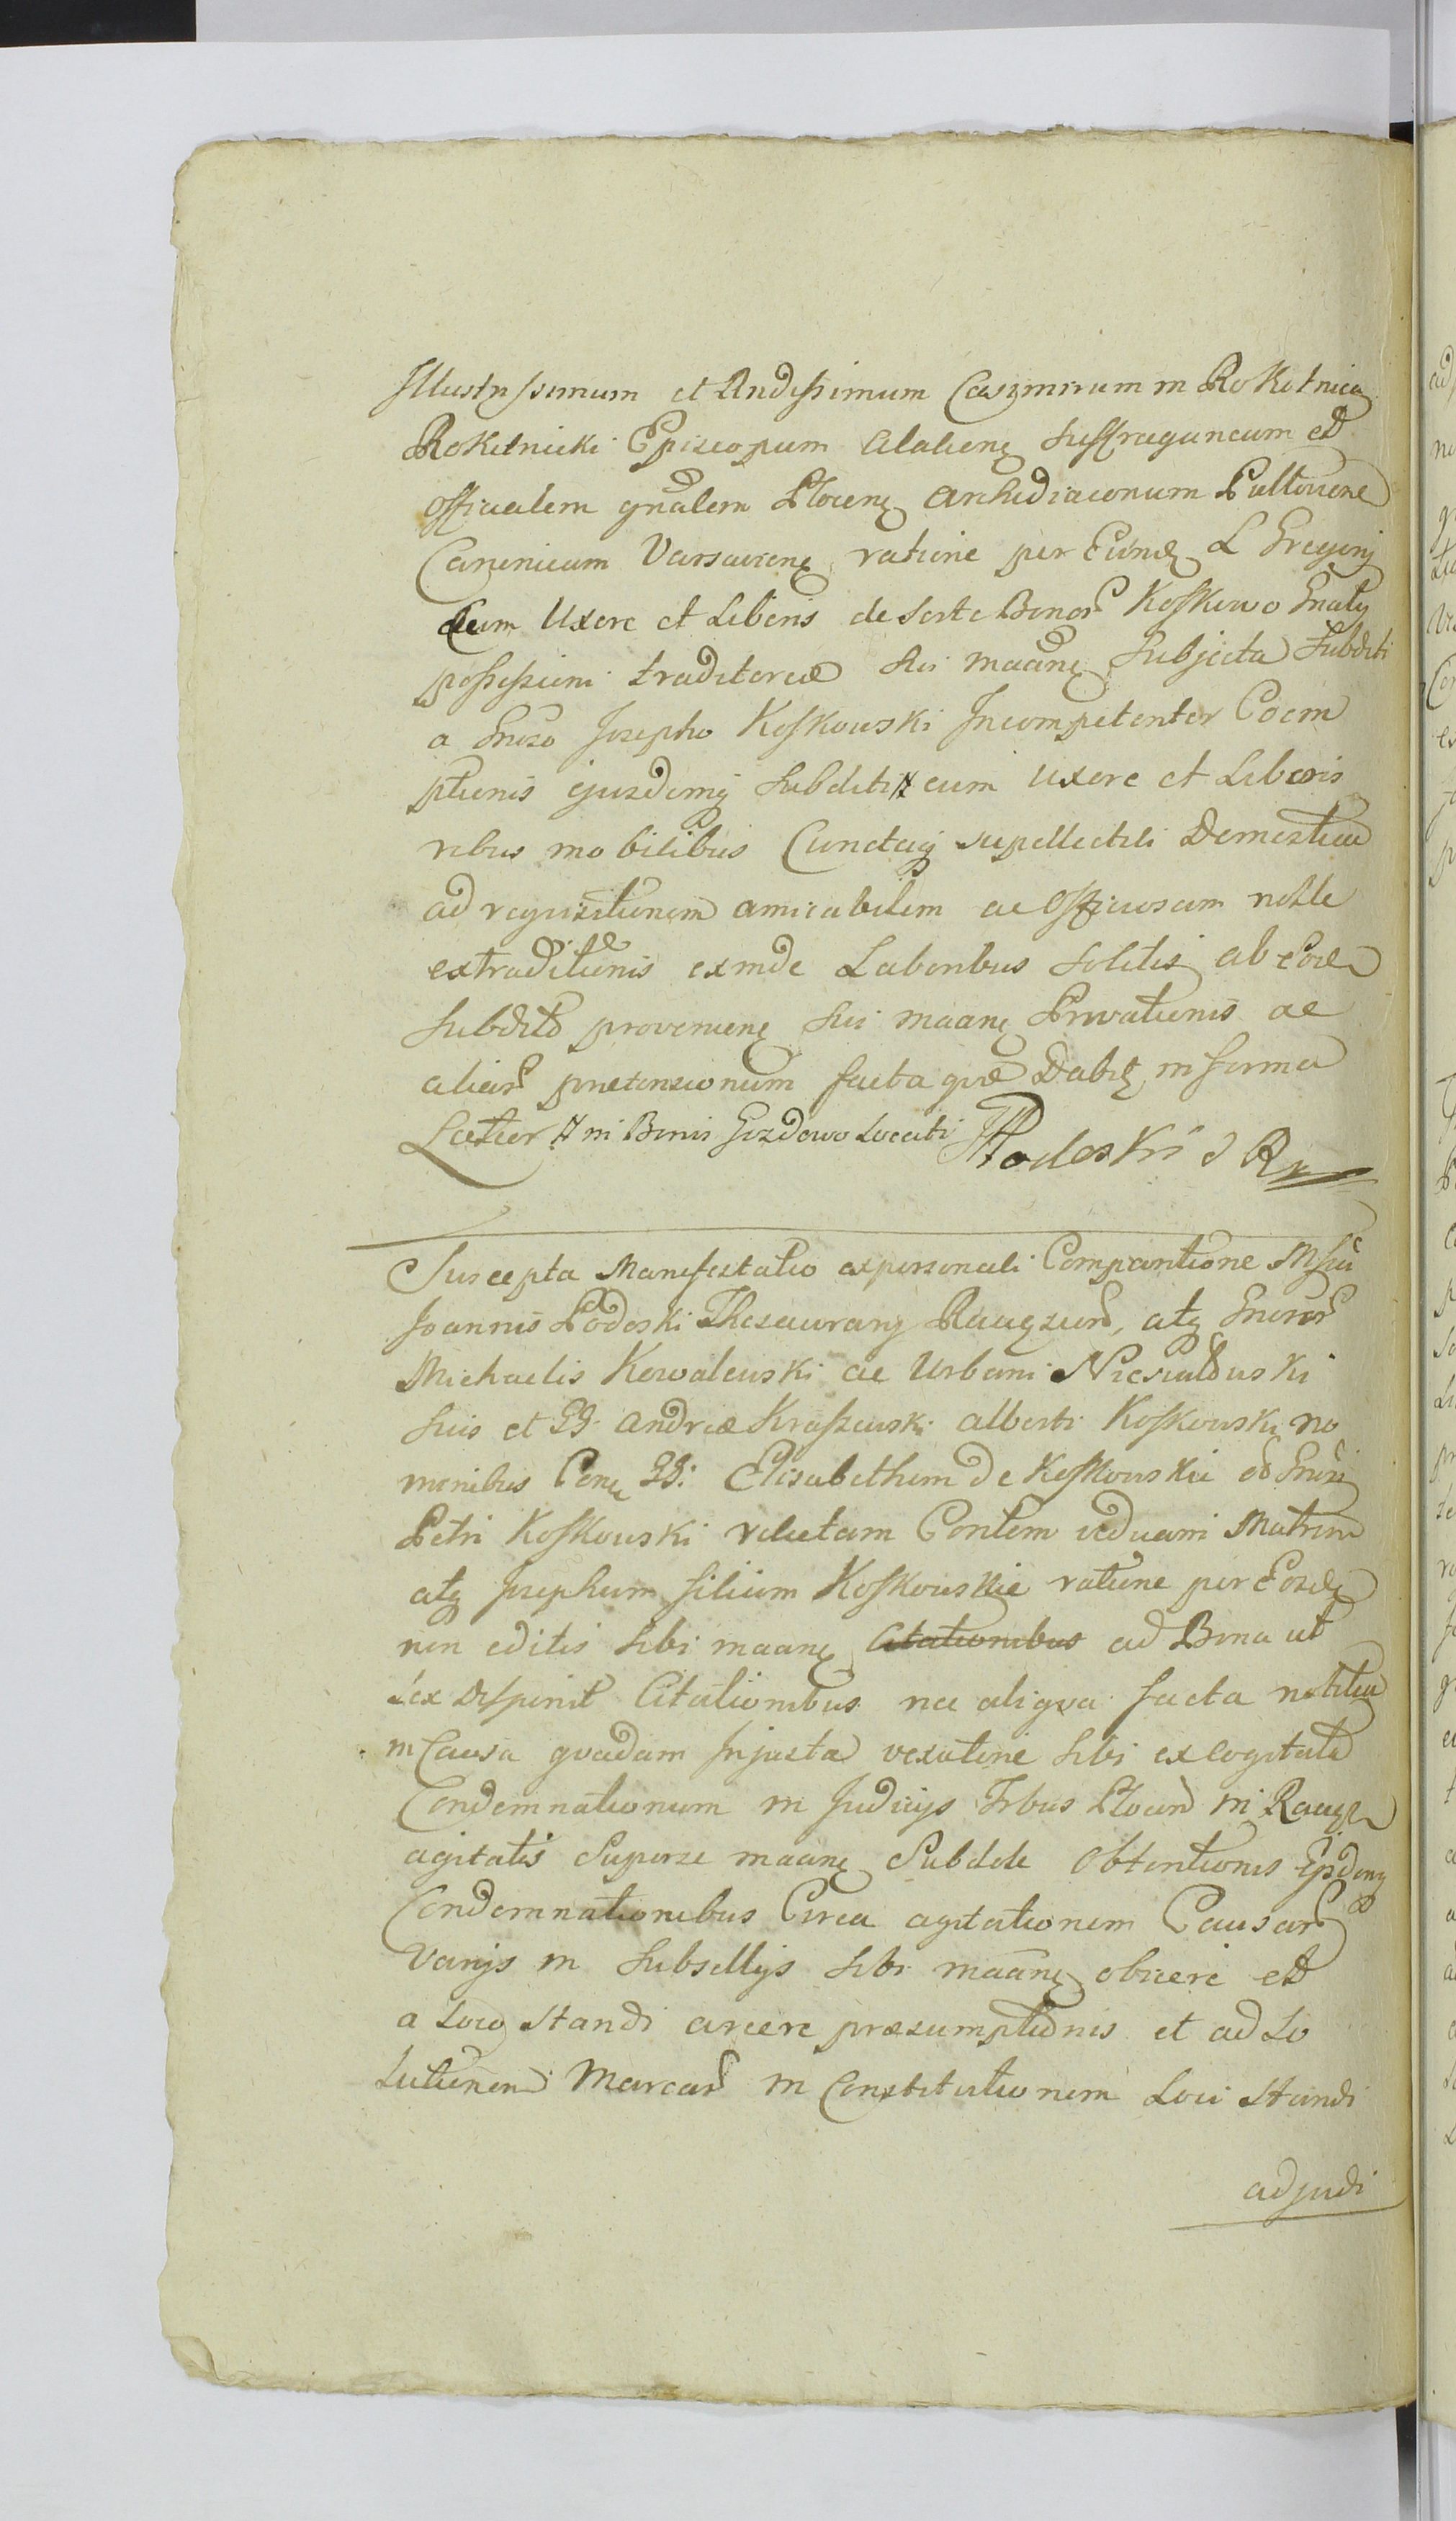 Illustrissimum et Rndissimum Cazimirum in Rokotnica
Rokitnicki Episcopum Alaliens Suffraganeum et
Officialem gnalem Plocens Archidiaconum Pultoviens
Canonicum Varsaviens ratione per Eund L Gregorij
cum Uxore et Liberis de Sorte Bonor Koskowo Gnatis
possessioni traditoriæ Sui maans Subjecta Subditi
a Gnoso Josepho Koskowski Incompetenter Coem
ptionis ejusdemq Subditi # cum Uxore et Liberis
rebus mobilibus Cunctaq supellectili Domestica
ad requisitionem amicabilem ac Officiosam nolle
extraditionis exinde Laboribus Solitis ab Eod
Subdito proveniens Sui maans Privationis ac
aliar prætensionum facta quæ Dabit in forma
Latior # in Bonis Gozdowo Locati JPodoski S R
Suscepta Manifestatio ex personali Comparitione Msfici
Joannis Podoski Thesaurarij Raygzen, atq Gnosor
Michaelis Kowalewski ac Urbani Niesiułowski
Suis et GG Andreæ Kraszewski Alberti Koskowski no
minibus Cons GG: Elisabetham de Koskowskie od Gnosi
Petri Koskowski relictam Contem viduam Matrem
atq Josephum filium Koskowskie ratione per Eosd
non editis Sibi maans Citationibus ad Bona ut
Lex Disponit Citationibus nec aliqva facta notitia
in Causa qvadam Injusta vexatione Sibi excogitata
Condemnationum in Judicijs Trbus Plocen in Raygz
agitatis Super se maans Subdole Obtentionis Ejsdemq
Condemnationibus Circa agitationem Causar
Varijs in Subsellijs Sibi maans obiicere et
a Loco Standi arcere præsumptionis et ad So
lutionem Marcar in Constitutionem Loci Standi
adjudi